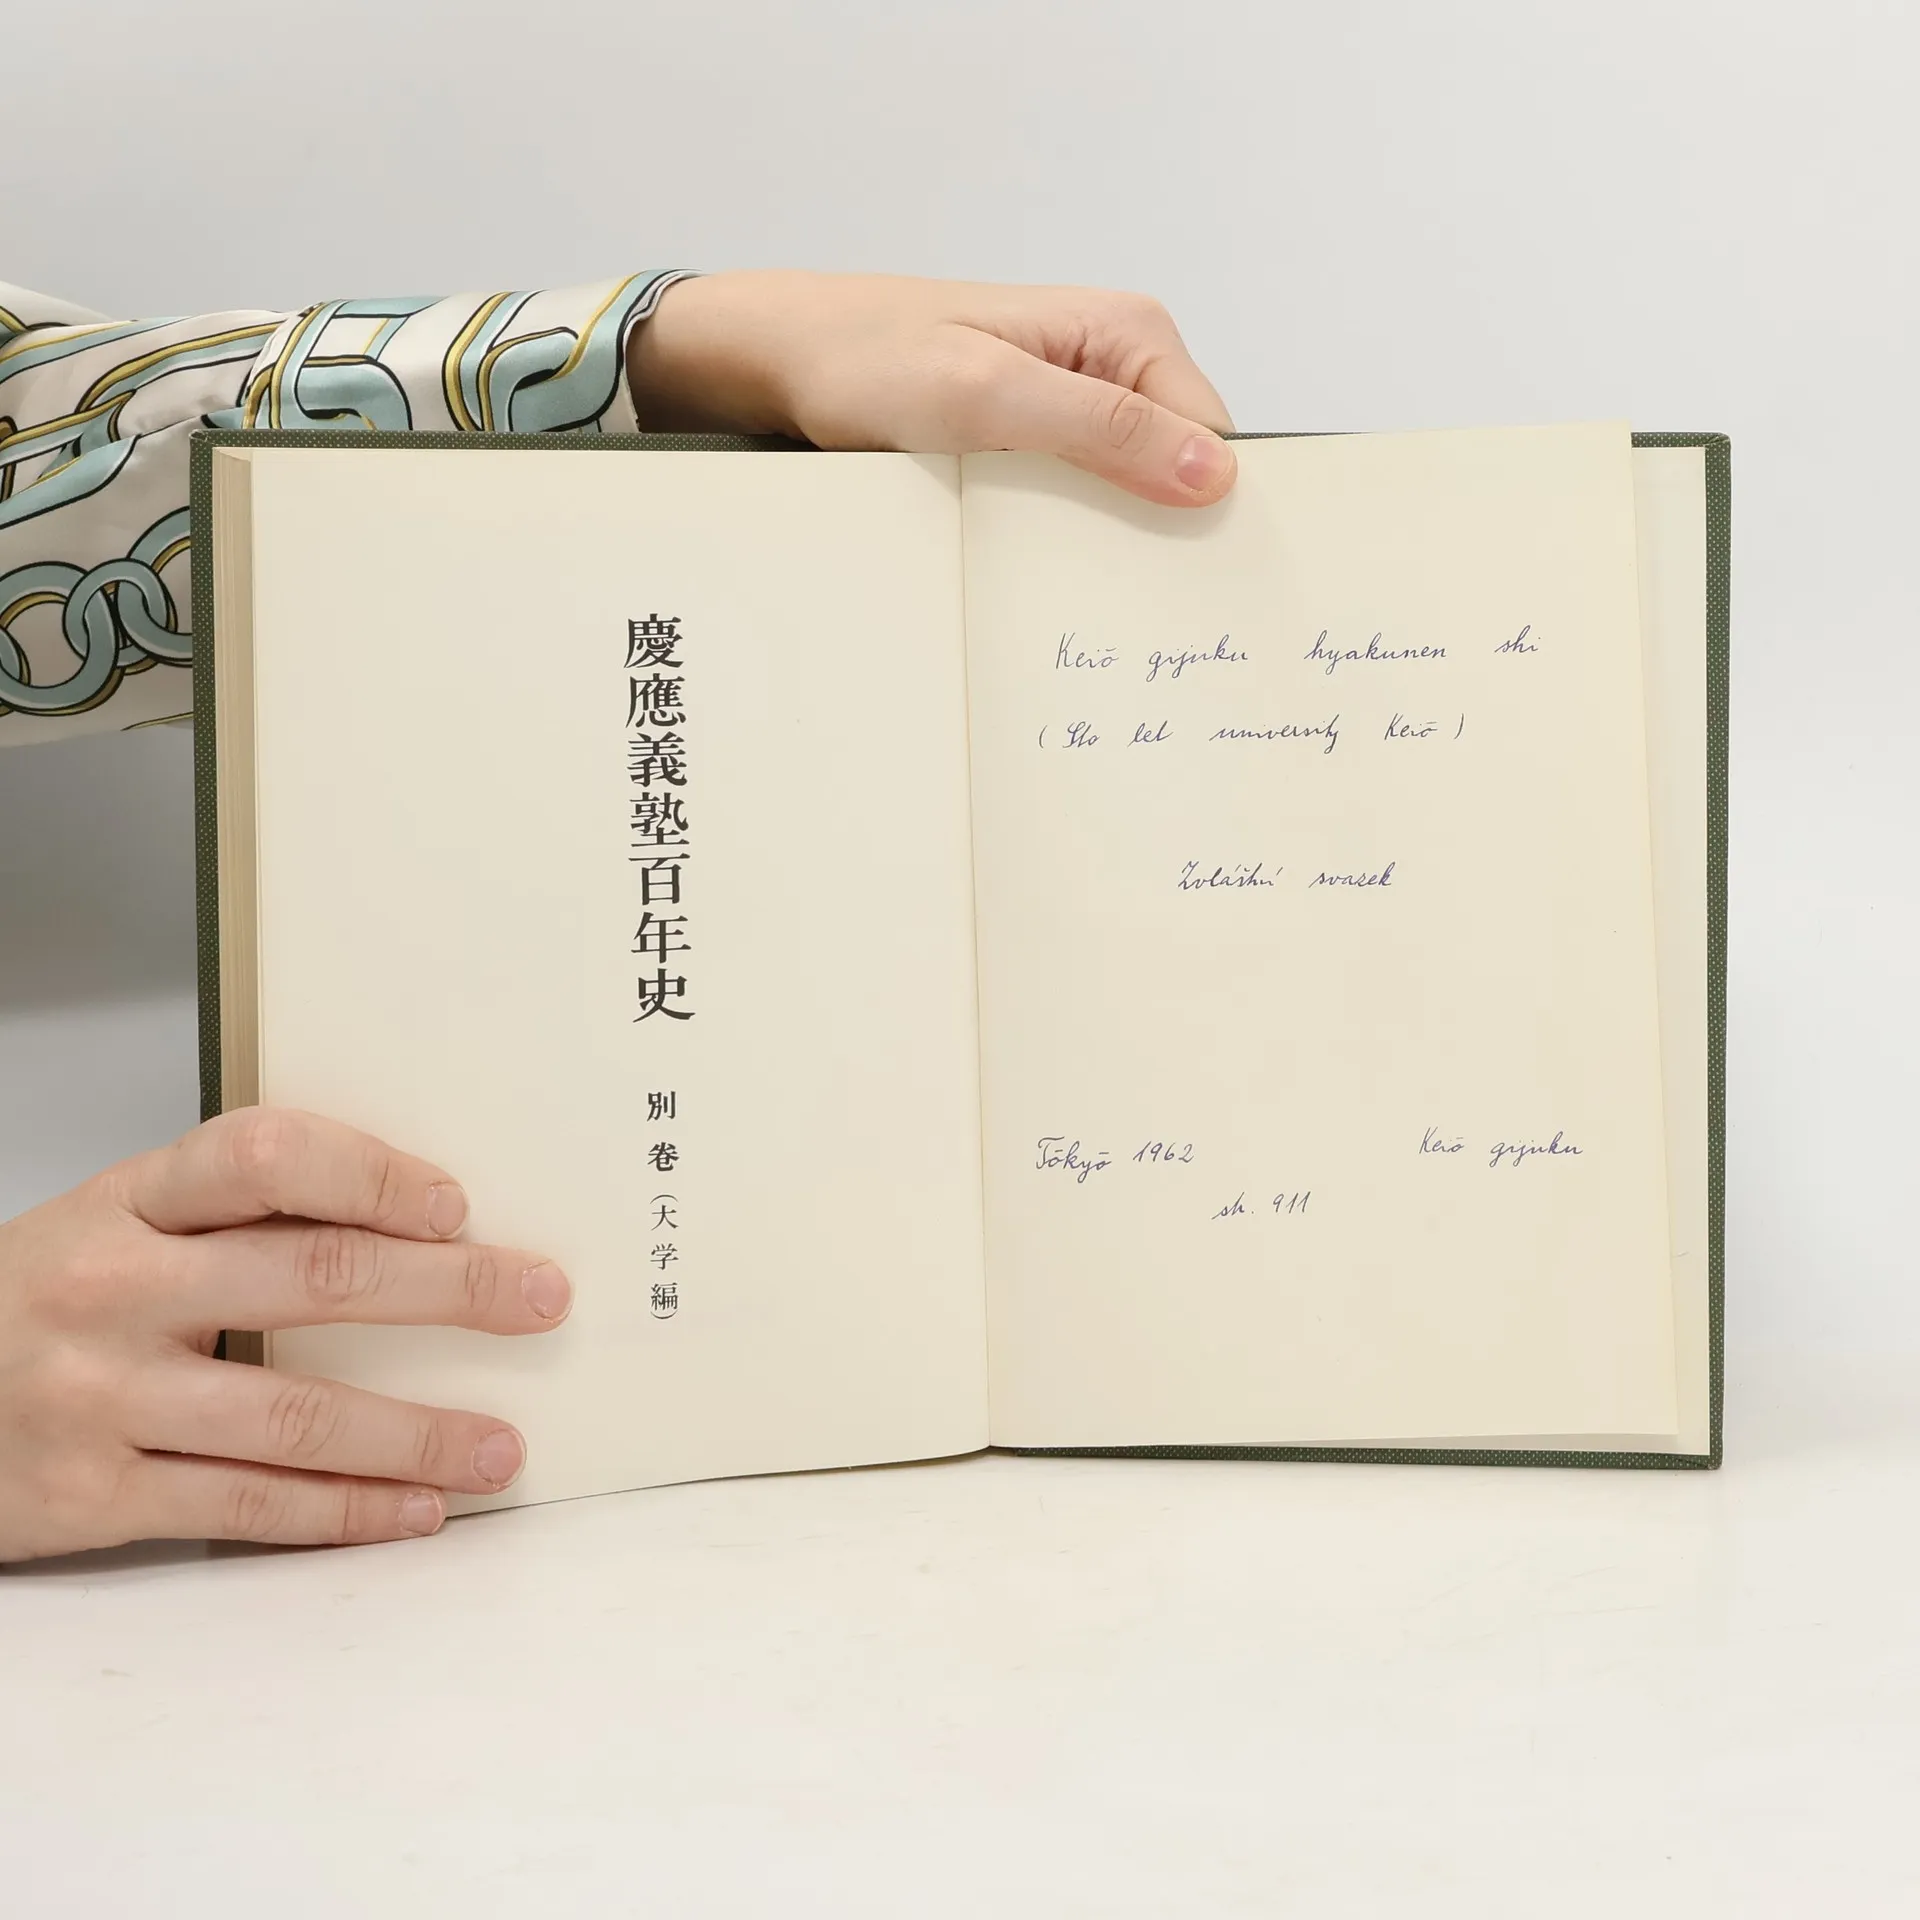 慶應義塾百年史
別卷(大学編)
Keiō gijuku hyakunen shi
(Sto let university Keiō)
Zvláštní svazek
Tōkyō 1962 Keiō gijuku
sh. 911